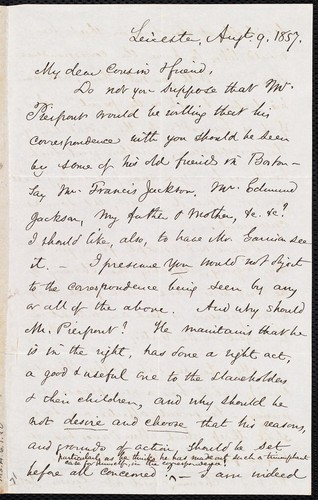 Leicester, Aug't. 9. 1857.
My dear Cousin & friend,
Do not you suppose that Mr.
Pierpont would be willing that his
correspondence with you should be seen
by some of his old friends in Boston –
Say Mr. Francis Jackson, Mr. Edmund
Jackson, my father & mother, &c. &c?
I should like, also, to have Mr. Garrison see
it. – I presume you would not object
to the correspondence being seen by any
or all of the above. And why should
Mr. Pierpont? He maintains that he
is in the right, has done a right act,
a good & useful one to the slaveholders
& their children, and why should he
not desire and choose that his reasons,
and grounds of action, should be set
particularly as he thinks he has made out such a triumphant
case for himself, in the correspondence?
before all concerned? – I am indeed